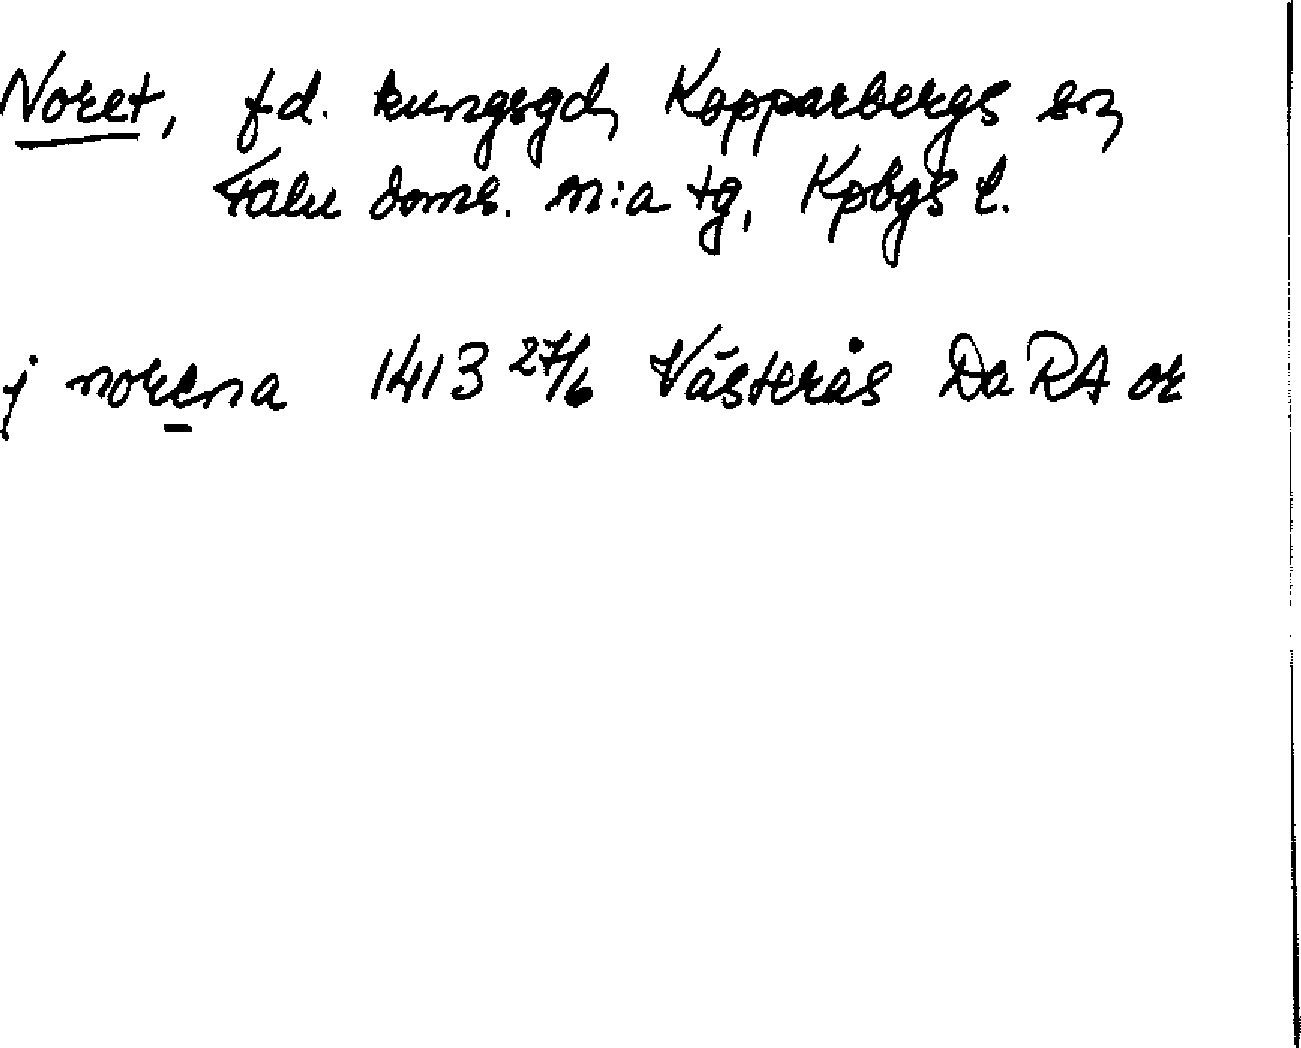 Noret, f d. kungsgd, Kopparbergs sn,
Falu doms. n:a tg, Kpbgs l.
j norena 1413 27/6 Västerås Da RA or